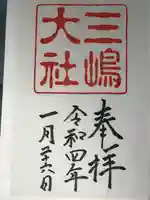 三嶋
大社
奉拝
令和四年
一月二十六日